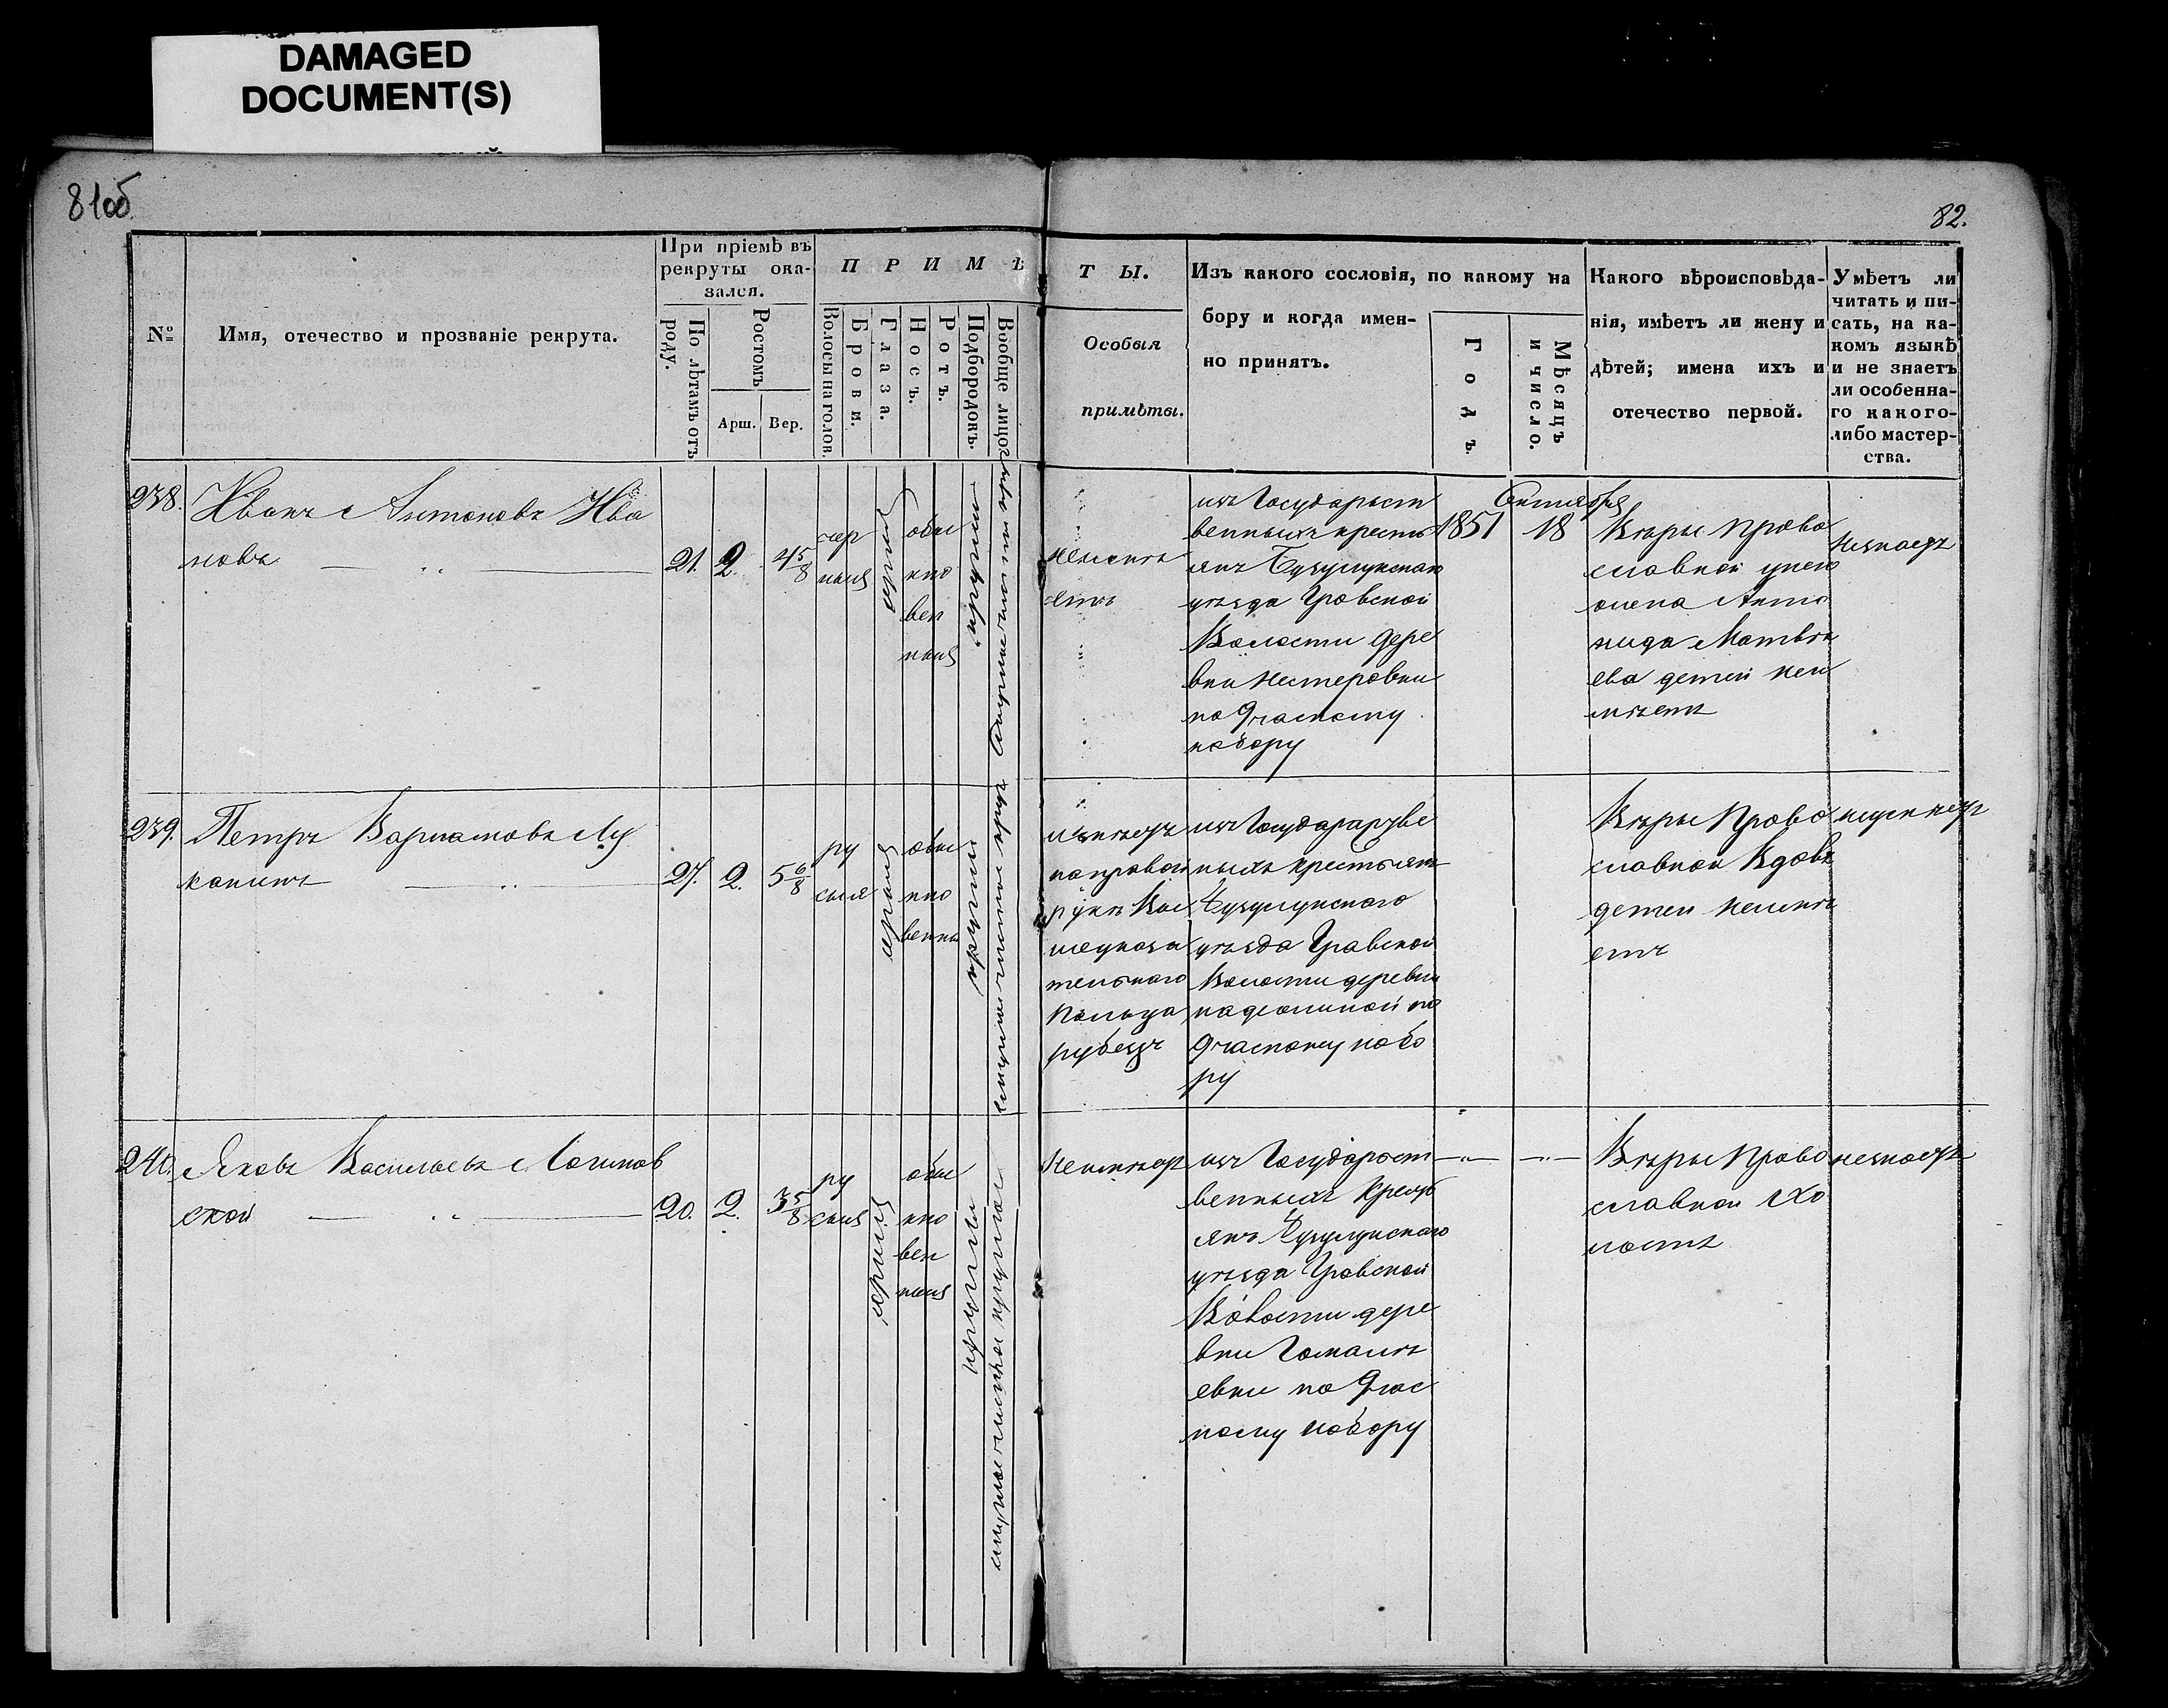 DAMAGED
DOCUMENT(S)
81об
82.
№
Имя, отечество и прозваніе рекрута.
При пріемѣ въ
рекруты ока-
зался.
По лѣтамъ отъ
роду.
Ростомъ
Арш.
Вер.
ПРИМѢ
Волосы на голов.
Брови.
Глаза.
Носъ.
Ротъ.
Подбородокъ.
Вообще лицо
ТЫ.
Особыя
примѣты.
Изъ какого сословія, по какому на
бору и когда имен-
но принятъ.
Годъ.
Мѣсяцъ
и число.
Какого вѣроисповѣда-
нія, имѣетъ ли жену и
дѣтей; имена ихъ и
отечество первой.
Умѣетъ ли
читать и пи-
сать, на ка-
комъ языкѣ
и не знаетъ
ли особенна-
го какого-
либо мастер-
ства.
238.
Иванъ Антоновъ Ива
новъ
21.
2.
4 5/8
чер
ныя
серыя
обык
но
вен
ныя
круглой
неимѣ
етъ
изъ Государст
венныхъ кресть
янъ Бузулукскаго
уѣзда Гровской
Волости дере
вни Нестеровки
по 9 частному
набору
1851
Октября
18
Вѣры Право
славной у него
жена Анто
нида Матвѣ
ева детей неи
мѣетъ
незнаетъ
239.
Петръ Варламовъ Лу
канинъ
27.
2.
5 6/8
ру
сыя
серыя
обык
но
венны
круглой
имѣетъ
на правой
рукѣ
тельнаго
пальца
рубецъ
изъ
ныхъ крестьянъ
Бузулукскаго
уѣзда Гравской
Волости деревни
надежиной по
9 частному набо
ру
Вѣры Право
славной Вдовъ
детей неимѣ
етъ
240.
Яковъ Васильевъ Логинов
ской
20.
2.
3 5/8
ру
сыя
серыя
обык
но
вен
ныя
круглой
Неимѣетъ
изъ Государст
венныхъ Крест
янъ Бузулукскаго
уѣзда Гровской
Волости дере
вни
евки по 9 час
ному набору
Вѣры Право
славной Хо
лостъ
незнаетъ